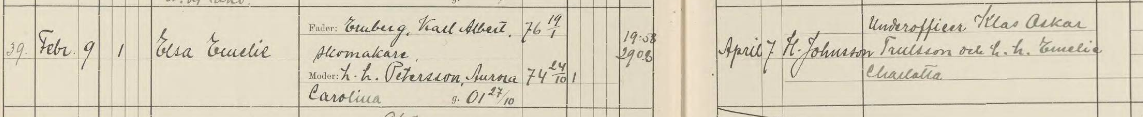 Fader: Emberg, Karl Albert, 76 19/1
39. Febr. 9 1 Elsa Emelie skomakare,
Moder: h. h. Petersson, Aurora 74 24/10 1
Carolina g. 01 27/10
19.58
2908
April 7 H. Johnsson
Underofficer Klas Oskar
Trulsson och h. h. Emelie
Charlotta